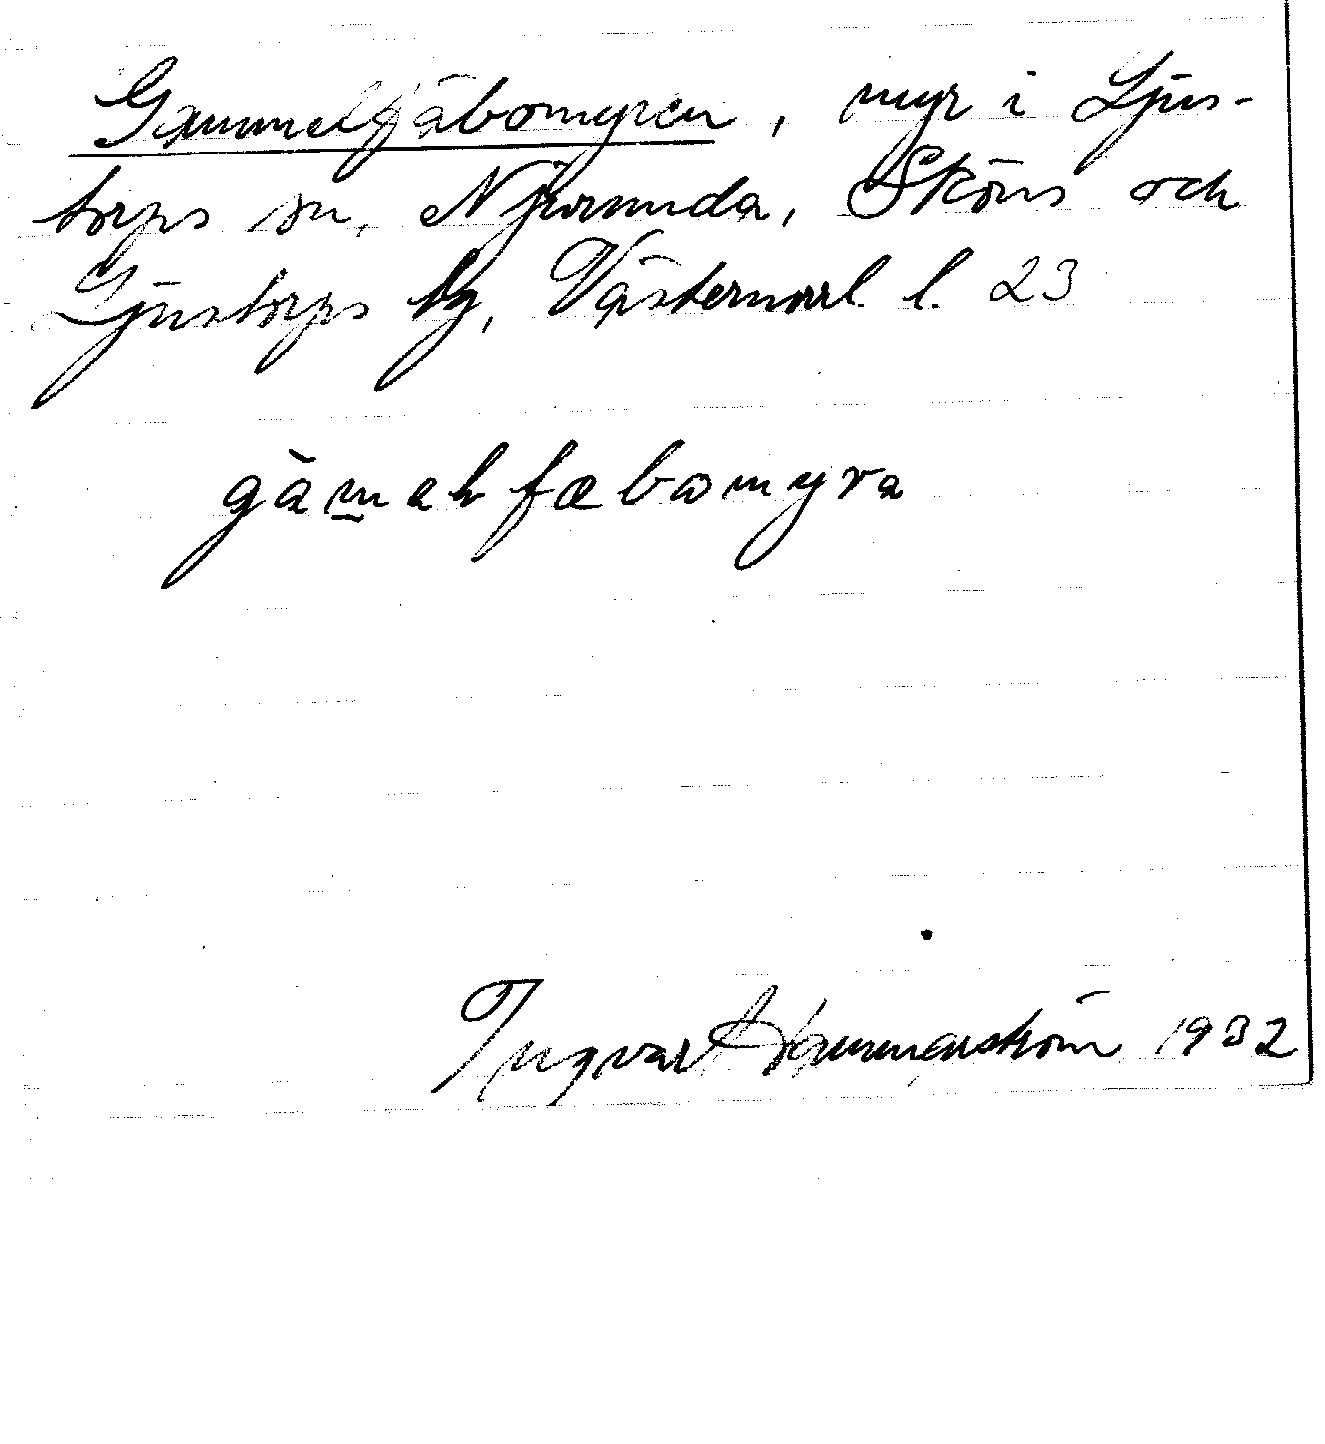 Gammelfäbomyren, myr i Ljus-
torps sn, Njurunda, Sköns och
Ljustorps tg, Västernorrl. l. 23
gàmelfæbomyra
Ingvar Hammarström 1932